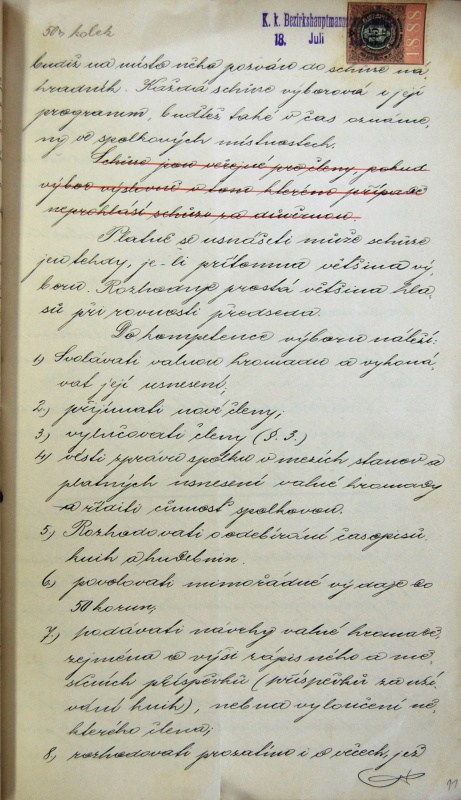 50h kolek
K. k. Bezirkshauptmann
18. Juli
1888
budiž na místo něho pozván do schůze ná-
hradník. Každá schůze výborová i její
programm, buďtež také v čas oznáme-
ny ve spolkových místnostech.
Schůze jsou veřejné pro členy, pokud
výbor výslovně v tom kterém případě
neprohlásí schůzi za důvěrnou.
Platně se usnášeti může schůze
jen tehdy, je-li přítomna většina vý-
boru. Rozhoduje prostá většina hla-
sů při rovnosti předseda.
Do kompetence výboru náleží:
1) Svolávati valnou hromadu a vykoná-
vat její usnesení;
2) přijímati nové členy;
3) vylučovati členy (§. 3.)
4) vésti správu spolku v mezích stanov a
platných usnesení valné hromady
a říditi činnost spolkovou.
5) Rozhodovati o odebírání časopisů
knih a hudebnin.
6) povolovati mimořádné výdaje do
50 korun;
7) podávati návrhy valné hromadě,
zejména o výši zápisného a mě-
síčních příspěvků (příspěvků za uží-
vání knih), neb na vyloučení ně-
kterého člena;
8) rozhodovati prozatímo i o věcech, jež